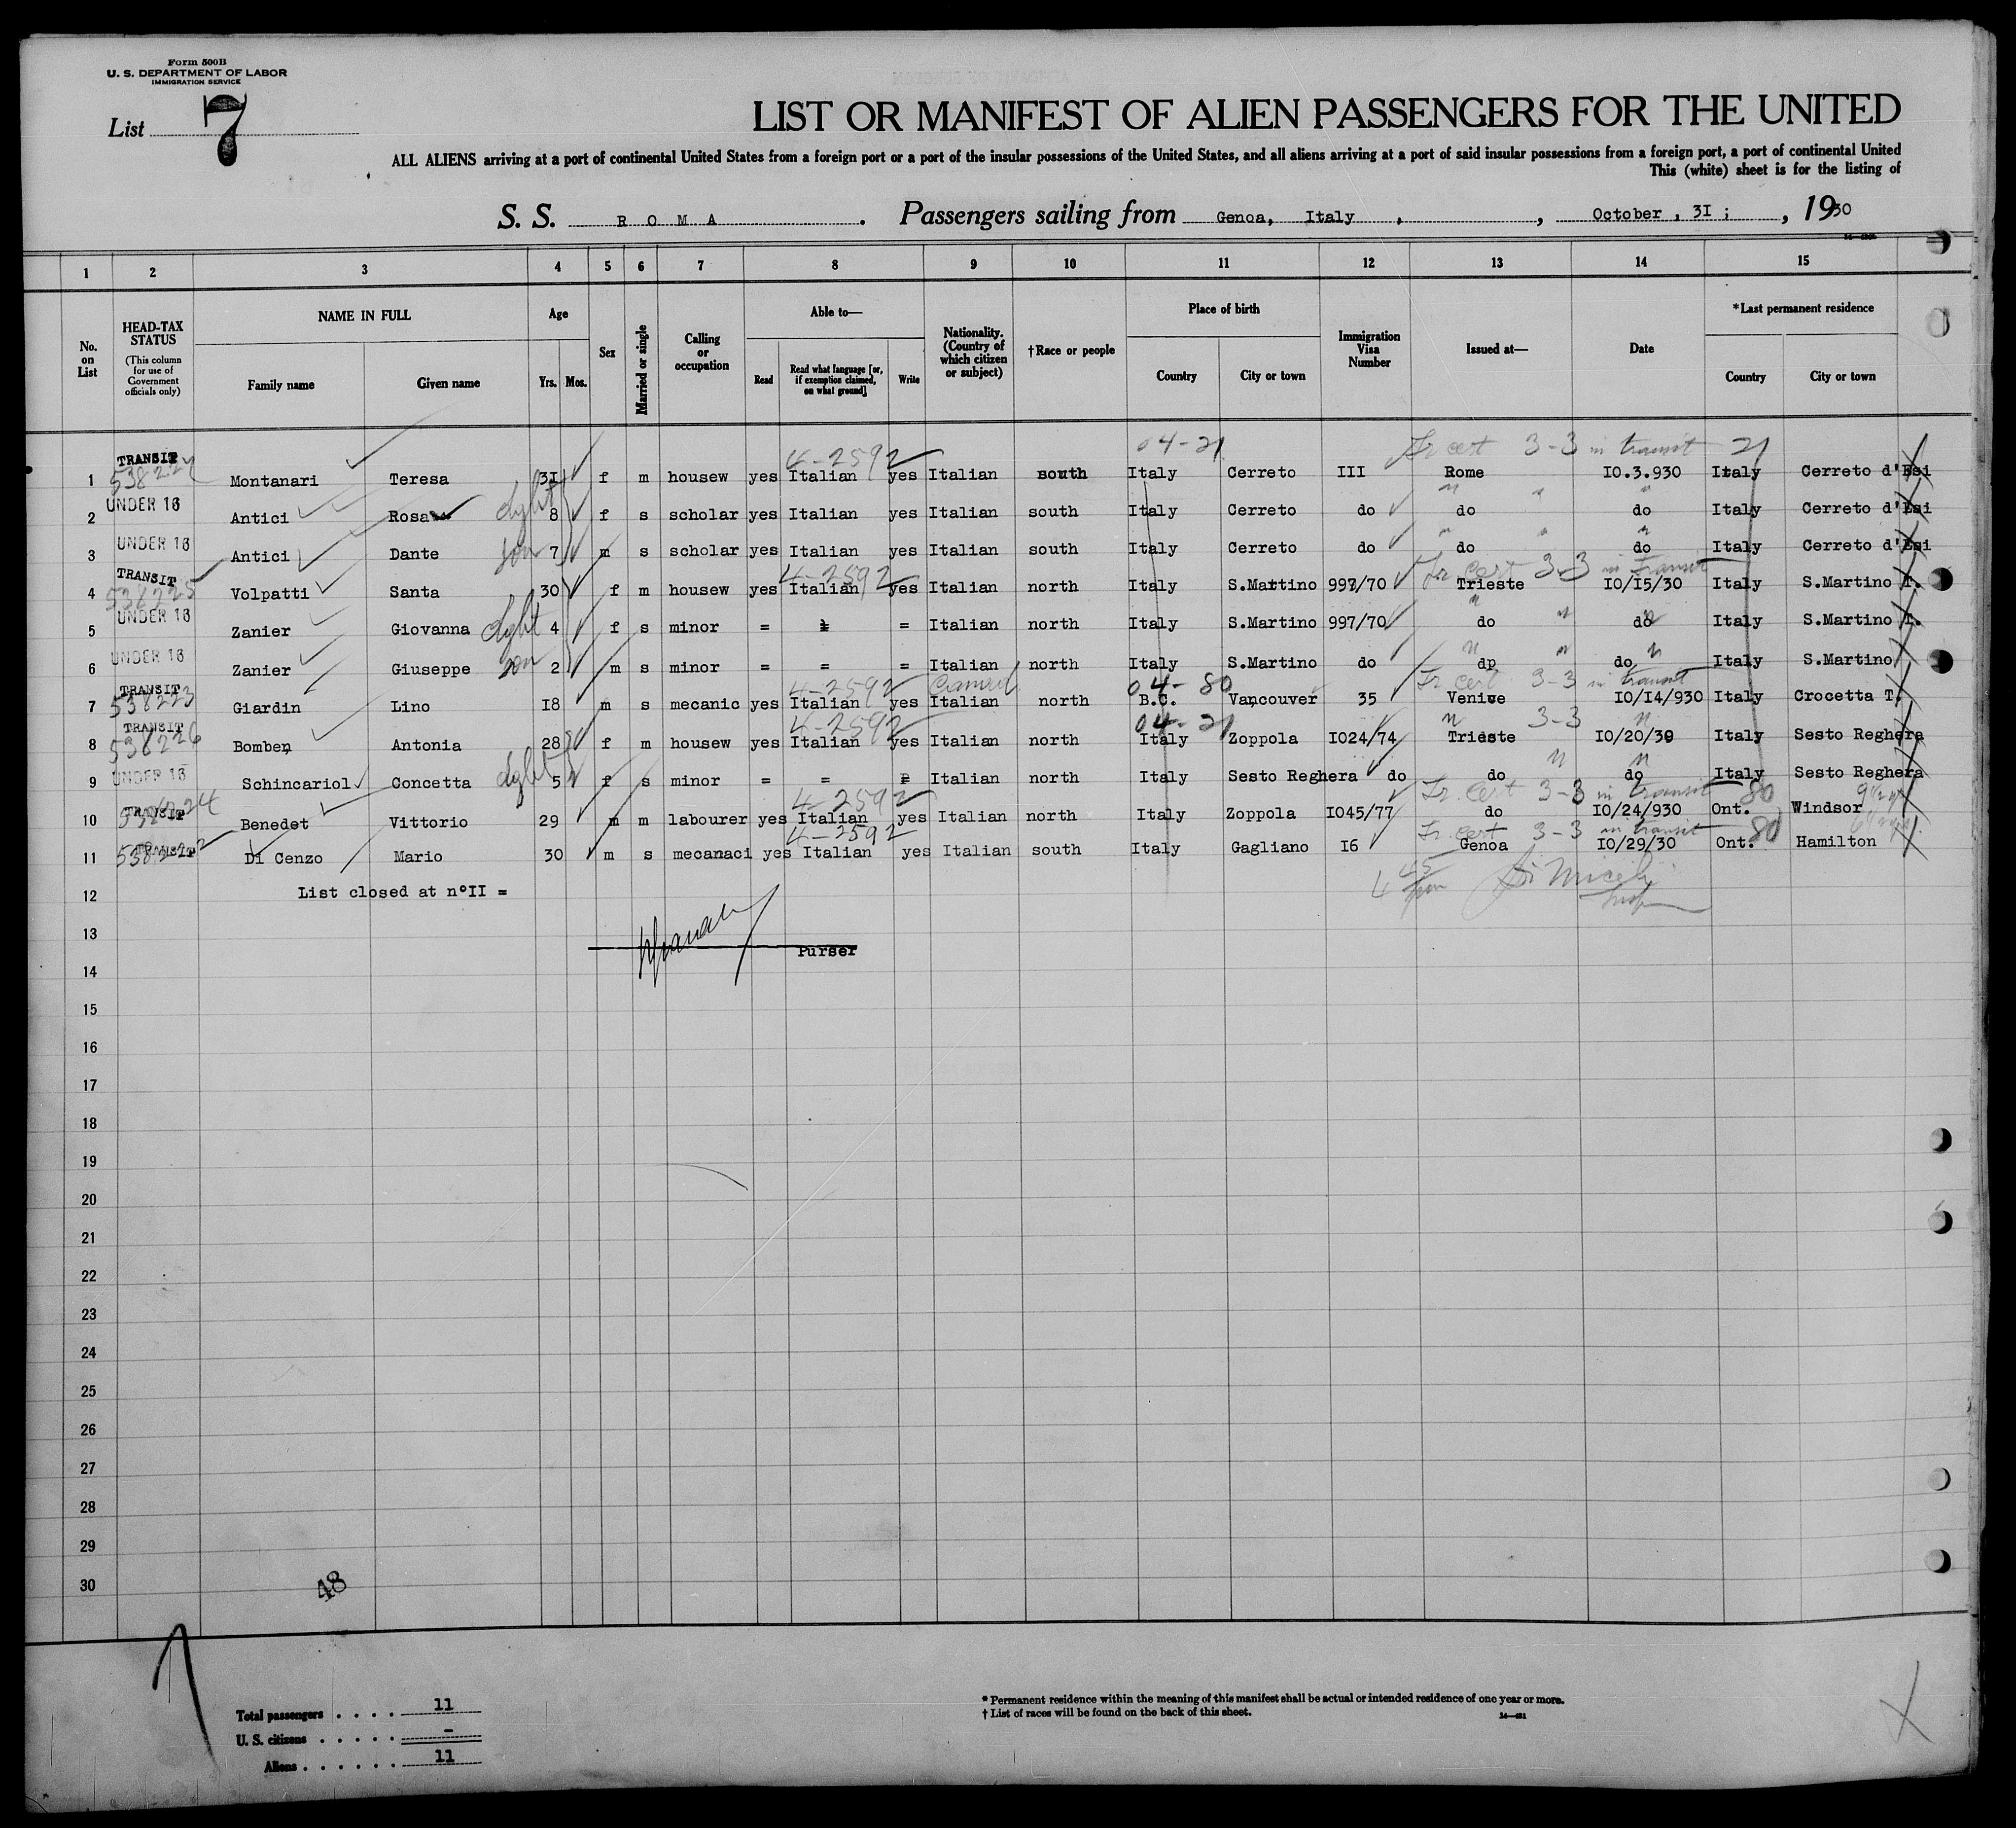 Form 500B
U. S. DEPARTMENT OF LABOR
IMMIGRATION SERVICE
List 7
LIST OR MANIFEST OF ALIEN PASSENGERS FOR THE UNITED
ALL ALIENS arriving at a port of continental United States from a foreign port or a port of the insular possessions of the United States, and all aliens arriving at a port of said insular possessions from a foreign port, a port of continental United
This (white) sheet is for the listing of
S. S. R O M A . Passengers sailing from Genoa, Italy , , October , 3I ; , 1930
1 2 3 4 5 6 7 8 9 10 11 12 13 14 15
No. on List
HEAD-TAX STATUS (This column for use of Government officials only)
NAME IN FULL Family name Given name
Age Yrs. Mos.
Sex
Married or single
Calling or occupation
Able to— Read Read what language [or, if exemption claimed, on what ground] Write
Nationality. (Country of which citizen or subject)
†Race or people
Place of birth Country City or town
Immigration Visa Number
Issued at—
Date
*Last permanent residence Country City or town
04-21 Tr cert 3-3 in transit 21
TRANSIT 4-2592
1 Montanari Teresa 3I f m housew yes Italian yes Italian south Italy Cerreto III Rome IO.3.930 Italy Cerreto d'Esi
2 UNDER 16 Antici Rosa dght 8 f s scholar yes Italian yes Italian south Italy Cerreto do do do Italy Cerreto d'Esi
3 UNDER 16 Antici Dante son 7 m s scholar yes Italian yes Italian south Italy Cerreto do do do Italy Cerreto d'Esi
TRANSIT 4-2592 Tr cert 3-3 in transit
4 538225 Volpatti Santa 30 f m housew yes Italian yes Italian north Italy S.Martino 997/70 Trieste IO/15/30 Italy S.Martino T.
5 UNDER 16 Zanier Giovanna dght 4 f s minor = = = Italian north Italy S.Martino 997/70 do do Italy S.Martino T.
6 UNDER 16 Zanier Giuseppe son 2 m s minor = = = Italian north Italy S.Martino do dp do Italy S.Martino
TRANSIT 4-2592 04-80 Tr cert 3-3 in transit
7 538223 Giardin Lino I8 m s mecanic yes Italian yes Italian north B.C. Vancouver 35 Venice IO/I4/930 Italy Crocetta T.
TRANSIT 4-2592 04-21 " 3-3 "
8 538226 Bomben Antonia 28 f m housew yes Italian yes Italian north Italy Zoppola IO24/74 Trieste IO/20/30 Italy Sesto Reghera
9 UNDER 16 Schincariol Concetta dght 5 f s minor = = = Italian north Italy Sesto Reghera do do do Italy Sesto Reghera
4-2592 Tr. cert 3-3 in transit 80
10 TRANSIT 538224 Benedet Vittorio 29 m m labourer yes Italian yes Italian north Italy Zoppola IO45/77 do IO/24/930 Ont. Windsor
4-2592 Tr. cert 3-3 in transit 80
11 TRANSIT 538222 Di Cenzo Mario 30 m s mecanaci yes Italian yes Italian south Italy Gagliano I6 Genoa IO/29/30 Ont. Hamilton
12 List closed at n°II =
13
Purser
14
15
16
17
18
19
20
21
22
23
24
25
26
27
28
29
30
48
Total passengers . . . . 11
U. S. citizens . . . . . -
Aliens . . . . . . 11
* Permanent residence within the meaning of this manifest shall be actual or intended residence of one year or more.
† List of races will be found on the back of this sheet.